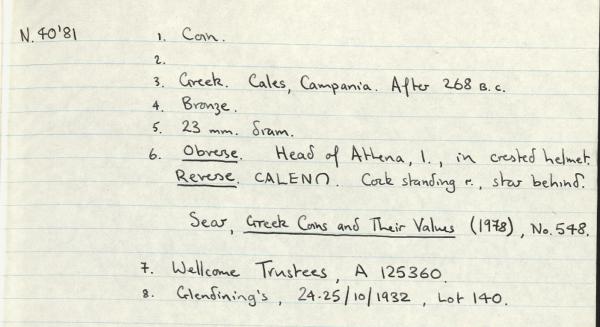 N.40'81 1. Coin.
2.
3. Greek. Cales, Campania. After 268 B.C.
4. Bronze.
5. 23 mm. diam.
6. Obverse. Head of Athena, l., in crested helmet.
Reverse. CALENO. Cock standing r., star behind.
Sear, Greek Coins and Their Values (1978), No. 548.
7. Wellcome Trustees, A 125360.
8. Glendining's, 24-25/10/1932, Lot 140.